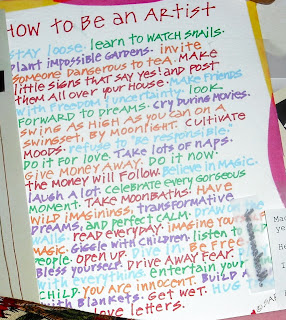 How to Be an Artist
Stay loose. learn to watch snails.
plant impossible gardens. invite
someone dangerous to tea. Make
little signs that say yes! and post
them all over your house. Make friends
with freedom & uncertainty. look
forward to dreams. cry during movies.
Swing as high as you can on a
swingset, by moonlight. Cultivate
moods. refuse to "be responsible."
Do it for love. Take lots of naps.
Give money away. Do it now.
the money will follow. Believe in magic.
laugh a lot. Celebrate every gorgeous
moment. Take moonbaths. Have
wild imaginings, transformative
dreams, and perfect calm. Draw on the
walls. read everyday. imagine you
magic. Giggle with children. listen to
people. open up. Dive in. Be free.
Bless yourself. Drive away fear.
with everything. entertain your
child. You are innocent. Build a
with blankets. Get wet. Hug
love letters.
Mac
ye
He